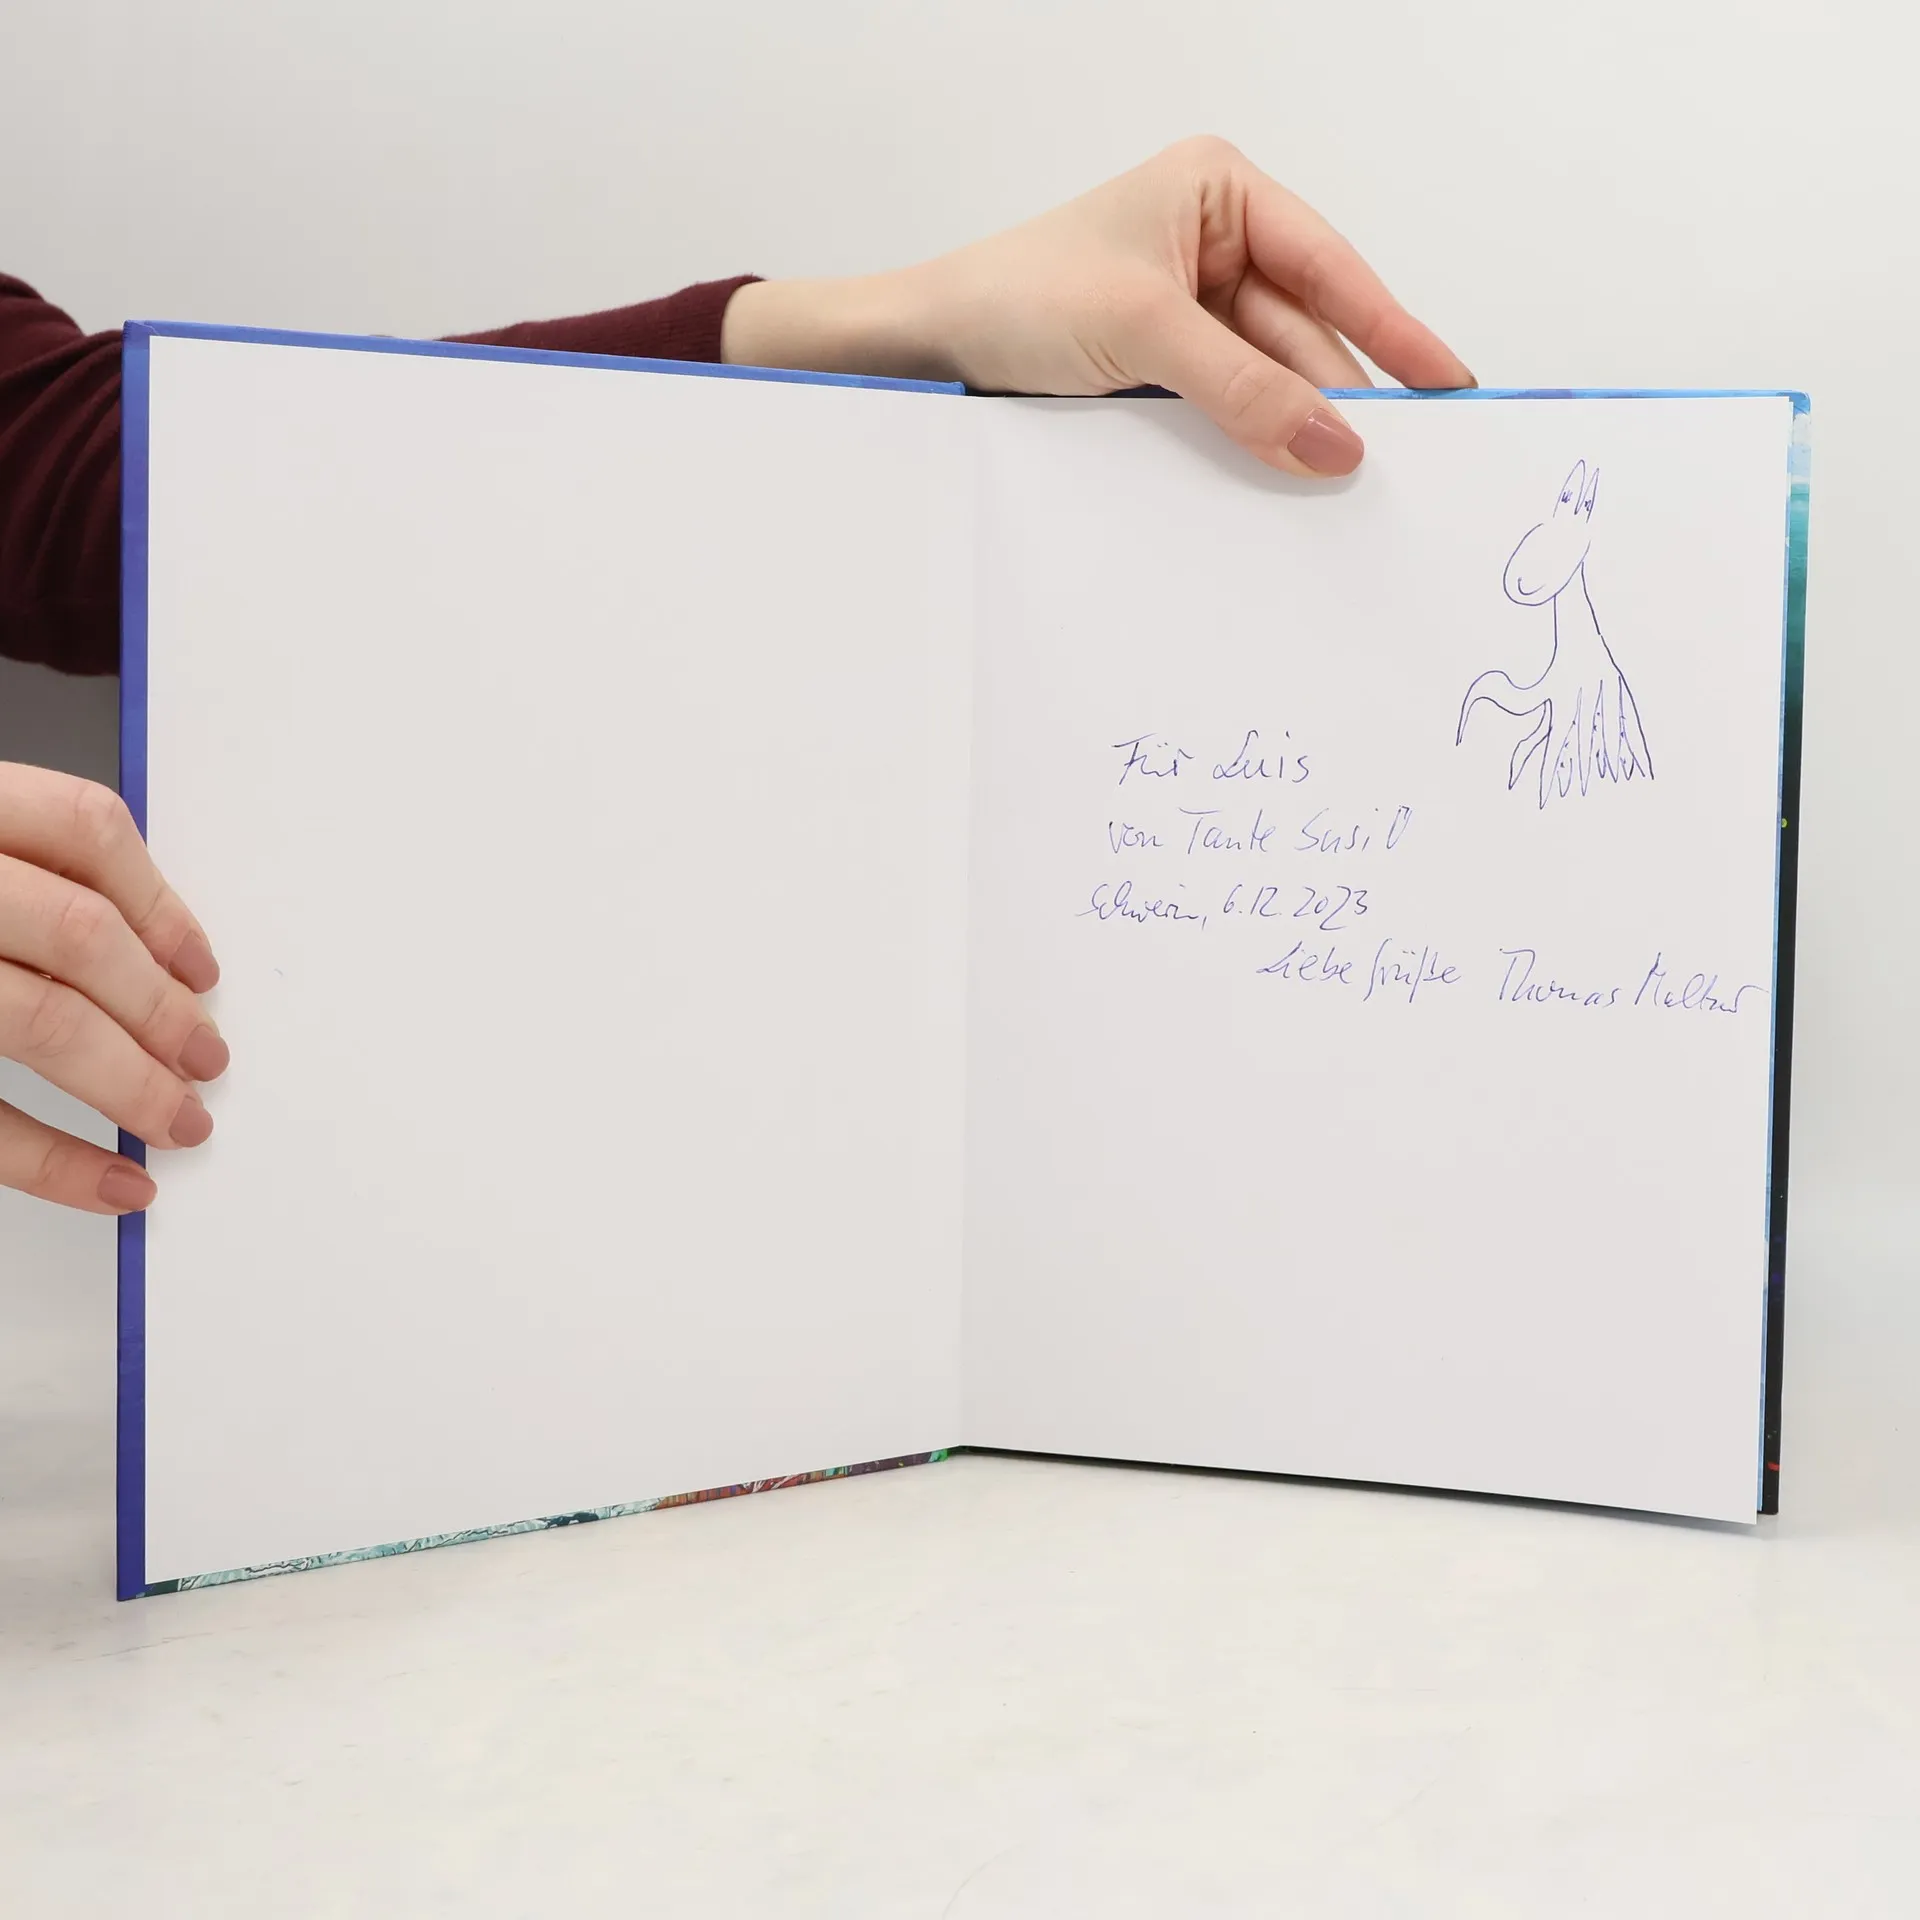 Für Luis
von Tante Susi
Schwerin, 6.12.2023
Liebe Grüße Thomas